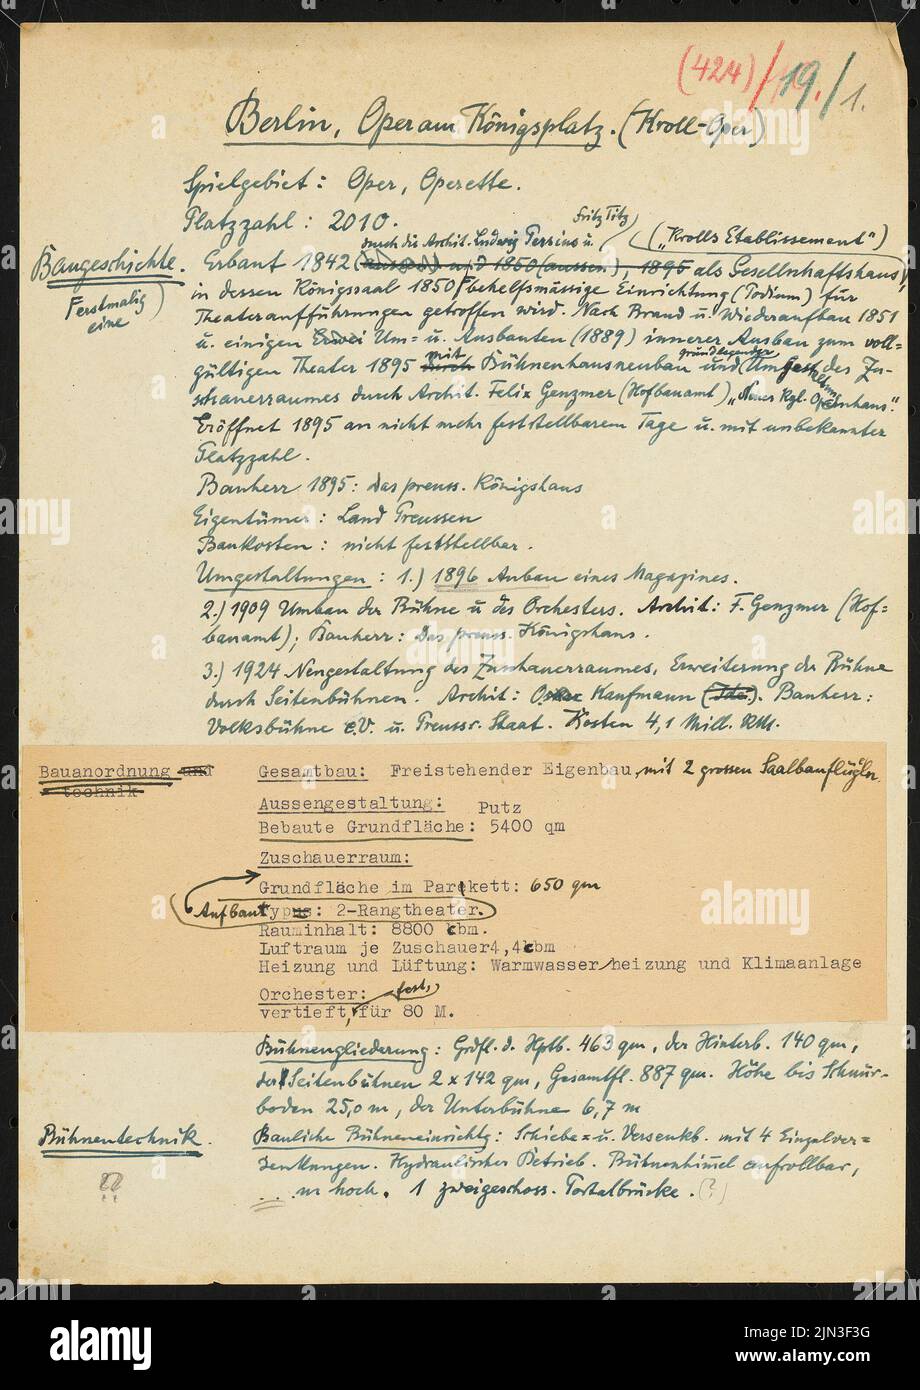 (424)/19./1.
Berlin, Oper am Königsplatz. (Kroll-Oper)
Spielgebiet: Oper, Operette.
Platzzahl: 2010.
Fritz Titz
durch die Archit. Ludwig Persius u.
("Krolls Etablissement")
Baugeschichte. Erbaut 1842 (aussen) und 1850 (aussen), 1895 als Gesellschaftshaus,
erstmalig eine
in dessen Königssaal 1850 behelfsmässige Einrichtung (Podium) für
Theateraufführungen getroffen wird. Nach Brand u. Wiederaufbau 1851
u. einigen Um- u. Ausbauten (1889) innerer Ausbau zum voll=
grundlegender
gültigen Theater 1895 durch mit Bühnenhausneubau und Umgestaltung des Zu-
schauerraumes durch Archit. Felix Genzmer (Hofbauamt) "Neues Kgl. Opernhaus".
Eröffnet 1895 an nicht mehr feststellbarem Tage u. mit unbekannter
Platzzahl.
Bauherr 1895: Das preuss. Königshaus
Eigentümer: Land Preussen
Baukosten: nicht feststellbar.
Umgestaltungen: 1.) 1896 Anbau eines Magazines.
2.) 1909 Umbau der Bühne u. des Orchesters. Archit: F. Genzmer (Hof=
bauamt); Bauherr: Das preuss. Königshaus.
3.) 1924 Neugestaltung des Zuschauerraumes, Erweiterung der Bühne
durch Seitenbühnen. Archit: Oskar Kaufmann. Bauherr:
Volksbühne e.V. u. Preuss. Staat. Kosten 4,1 Mill. RM.
Bauanordnung und technik
Gesamtbau: Freistehender Eigenbau, mit 2 grossen Saalbauflügeln
Aussengestaltung: Putz
Bebaute Grundfläche: 5400 qm
Zuschauerraum:
Grundfläche im Parkett: 650 qm
Aufbautypus: 2-Rangtheater.
Rauminhalt: 8800 cbm.
Luftraum je Zuschauer 4,4 cbm
Heizung und Lüftung: Warmwasserheizung und Klimaanlage
Orchester: fest,
vertieft, für 80 M.
Bühnengliederung: Grdfl. d. Hptb. 463 qm, der Hinterb. 140 qm,
der Seitenbühnen 2 x 142 qm, Gesamtfl. 887 qm. Höhe bis Schnür-
boden 25,0 m, der Unterbühne 6,7 m
Bühnentechnik. Bauliche Bühneneinrichtg: Schiebe= u. Versenkb. mit 4 Einzelver=
senkungen. Hydraulischer Betrieb. Bühnenhimmel aufrollbar,
?? ... m hoch. 1 zweigeschoss. Portalbrücke. (?)
alamy
alamy
Image ID: 2JN3F3G
www.alamy.com